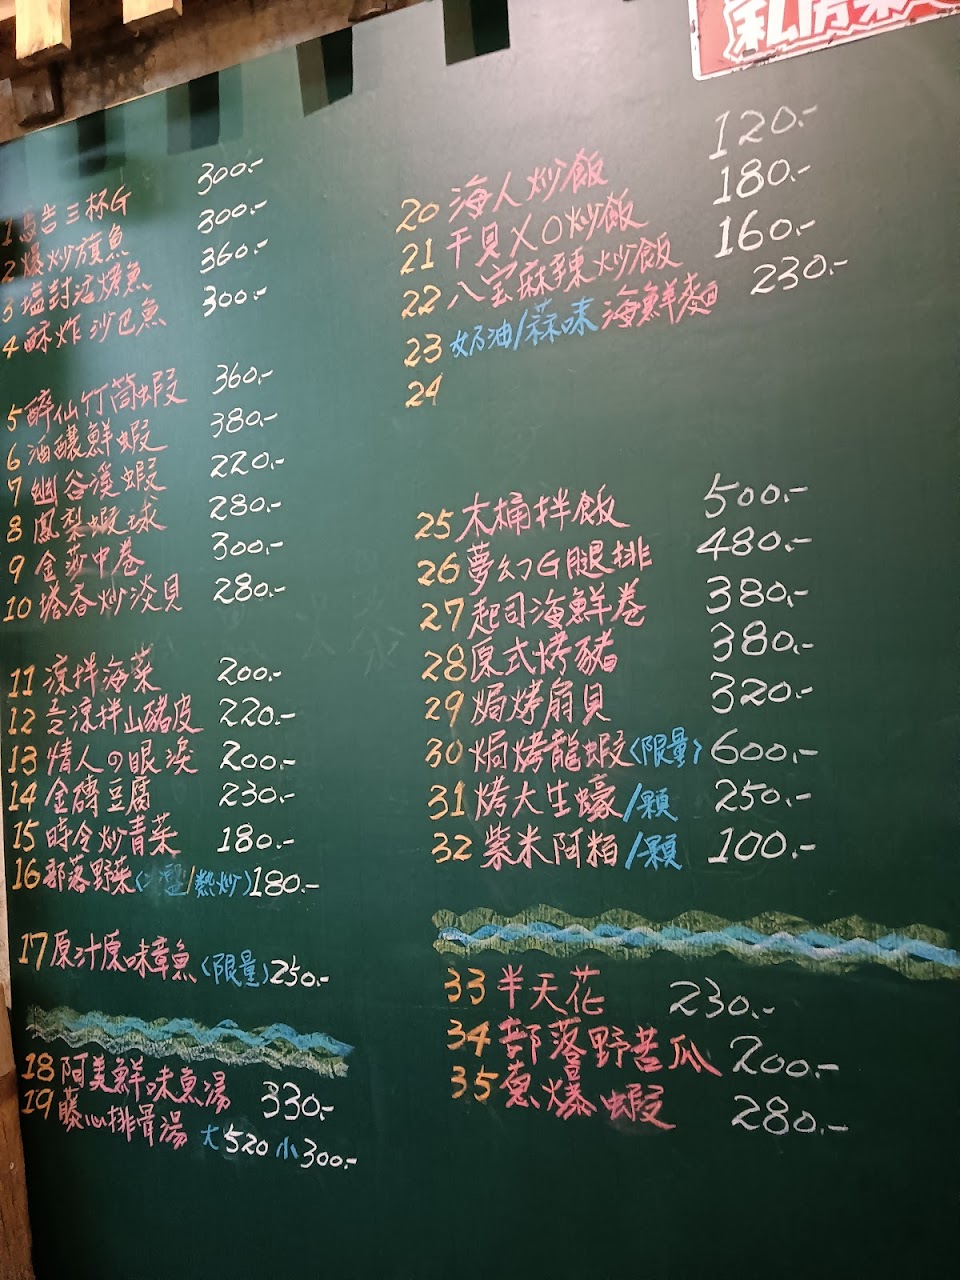 私房菜
1 馬告三杯G 300.-
2 爆炒旗魚 300.-
3 塩封活烤魚 360.-
4 酥炸沙巴魚 300.-
5 醉仙竹筒蝦 360.-
6 酒釀鮮蝦 380.-
7 幽谷溪蝦 220.-
8 鳳梨蝦球 280.-
9 金莎中卷 300.-
10 塔香炒淡貝 280.-
11 涼拌海菜 200.-
12 涼拌山豬皮 220.-
13 情人の眼淚 200.-
14 金磚豆腐 230.-
15 時令炒青菜 180.-
16 部落野菜(/熱炒) 180.-
17 原汁原味章魚(限量) 250.-
18 阿美鮮味魚湯 330.-
19 藤心排骨湯 大520 小300.-
20 海人炒飯 120.-
21 干貝XO炒飯 180.-
22 八宝麻辣炒飯 160.-
23 奶油/蒜味海鮮麵 230.-
24
25 木桶拌飯 500.-
26 夢幻G腿排 480.-
27 起司海鮮卷 380.-
28 原式烤豬 380.-
29 焗烤扇貝 320.-
30 焗烤龍蝦(限量) 600.-
31 烤大生蠔/顆 250.-
32 紫米阿粨/顆 100.-
33 半天花 230.-
34 部落野苦瓜 200.-
35 蔥爆蝦 280.-